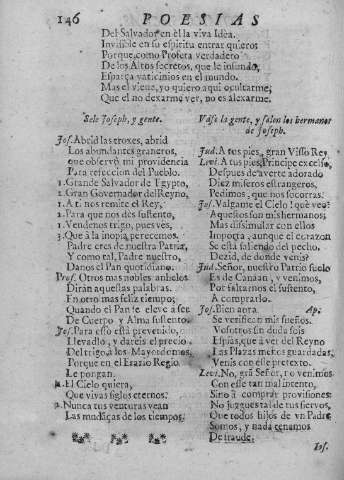 146 POESIAS
Del Salvador en èl la viva Idèa.
Invisible en su espiritu entrar quiero;
Porque como Profeta verdadero
De los Altos secretos, que le infundo,
Esparça vaticinios en el mundo.
Mas el viene, yo quiero aqui ocultarme;
Que el no dexarme vèr, no es alexarme.
Sale Joseph, y gente.
Jos. Abrid las troxes, abrid
Los abundantes graneros,
que observò mi providencia
Para refeccion del Pueblo.
1. Grande Salvador de Egypto,
2. Gran Governador del Reyno,
1. A ti nos remite el Rey,
2. Para que nos dès sustento,
1. Vendenos trigo, pues vès,
3. Que à la inopia perecemos.
Padre eres de nuestra Patria,
Y como tal, Padre nuestro,
Danos el Pan quotidiano.
Prof. Otros mas nobles anhelos
Diràn aquestas palabras.
En otro mas feliz tiempo;
Quando el Pan se eleve a ser
De Cuerpo y Alma sustento.
Jos. Para esso està prevenido,
Llevadlo, y dareis el precio
Del trigo, a los Mayordomos,
Porque en el Erario Regio
Le pongan.
1. El Cielo quiera,
Que vivas siglos eternos.
2. Nunca tus venturas vean
Las mudãças de los tiempos.
Vase la gente, y salen los hermanos
de Joseph.
Jud. A tus pies, gran Visso Rey
Levi. A tus pies, Principe excelso,
Despues de averte adorado
Diez miseros estrangeros,
Pedimos, que nos socorras.
Jos. Valgame el Cielo! què veo?
Aquestos son mis hermanos;
Mas dissimular con ellos
Importa, aunque el corazon
Se està saliendo del pecho.
Dezid, de donde venis?
Jud. Señor, nuestro Patrio suelo
Es de Canàan, y venimos,
Por faltarnos el sustento,
A comprarlo.
Jos. Bien aora. Ap:
Se verifican mis sueños.
Vosotros sin duda sois
Espias, que à vèr del Reyno
Las Plazas menos guardadas,
Venis con esse pretexto.
Levi. No, grã Señor, no venimos
Con esse tan mal intento,
Sino à comprar provisiones:
No juzgues tal de tus siervos,
Que todos hijos de vn Padre
Somos, y nada tenemos
De fraude.
Jos.